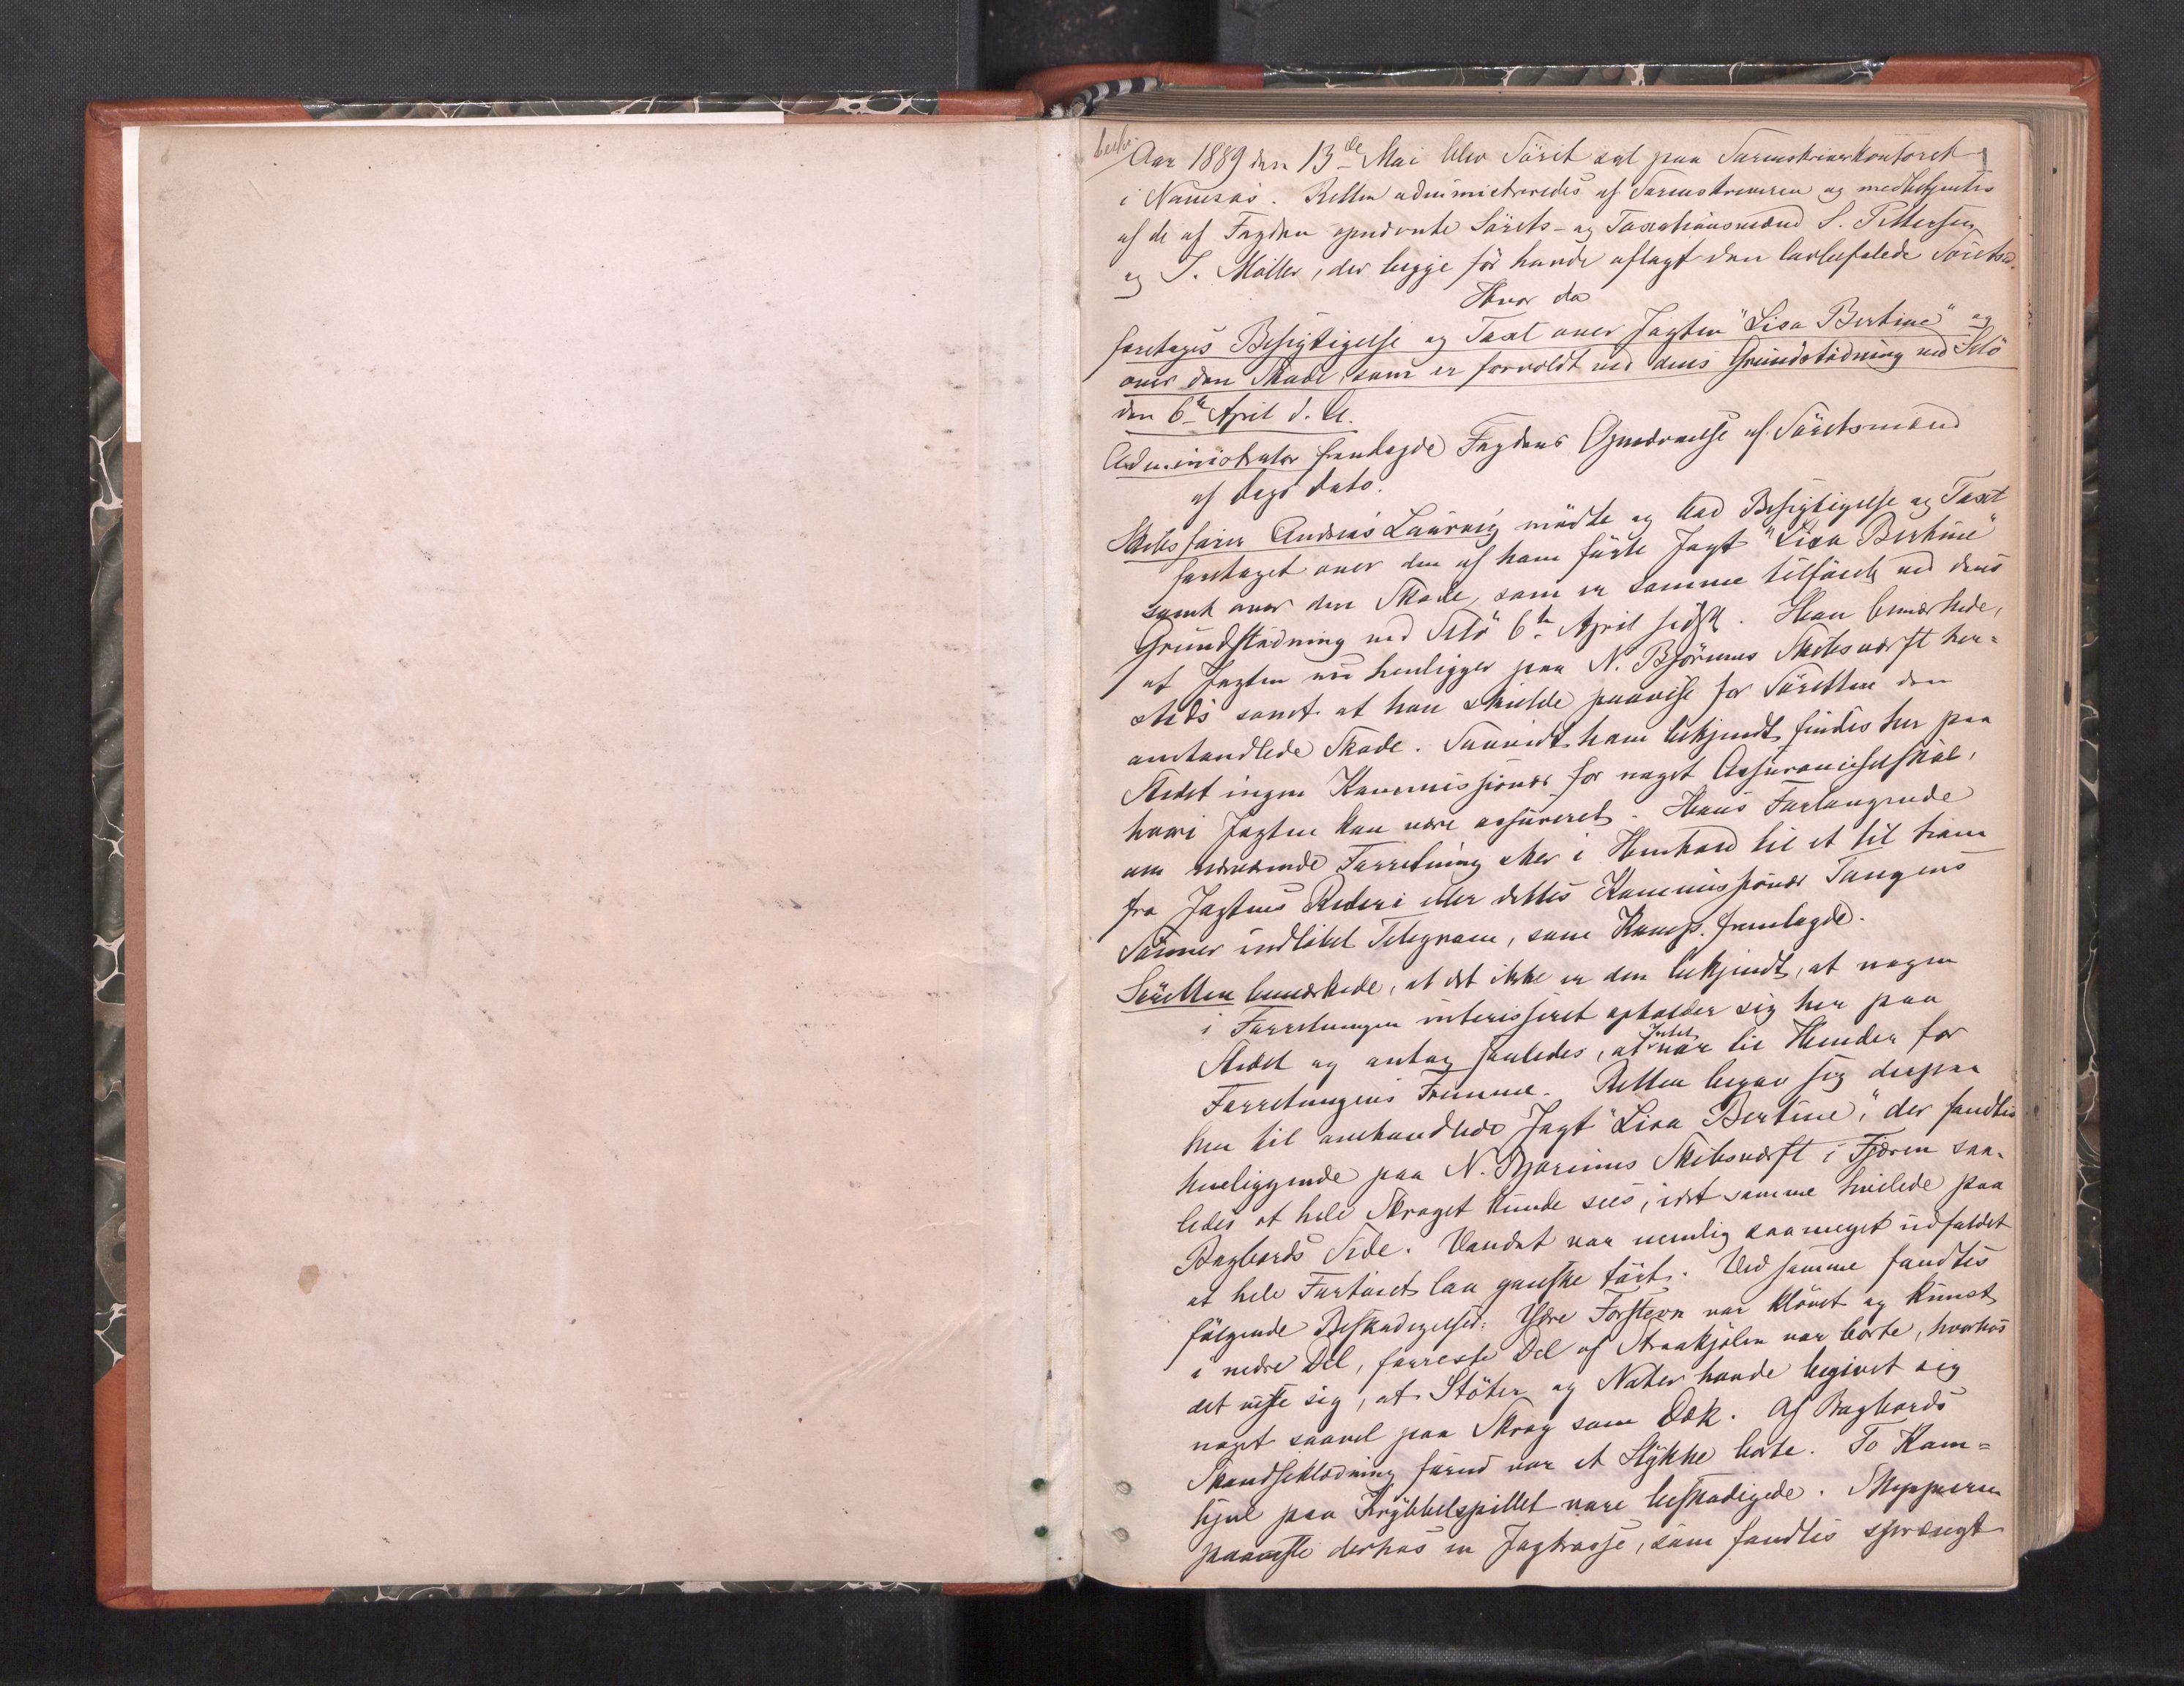 Aar 1889 den 13de Mai blev Söret sat paa Sorenskriverkontoret
i Namsos. Retten administreredes af Sorenskriveren og medbetjentes
af de af Fogden opnævnte Sörets- og Taxationsmænd S. Pettersen
og J. Möller, der begge för havde aflagt den lovbefalede Söretsed.
Hvor da
foretages Besigtigelse og Taxt over Jagten "Lisa Bertine" og
over den Skade, som er forvoldt ved dens Grundstödning ved
den 6te April d. A.
Administrator fremlagde Fogdens Opnævnelse af Söretsmænd
af Dags Dato.
Skibsförer Andreas Laurvig mödte og bad Besigtigelse og Taxt
foretaget over den af ham förte Jagt "Lisa Bertine"
samt over den Skade, som er samme tilföiet ved dens
Grundstödning ved 6te April sidstl. Han bemærkede,
at Jagten nu henligger paa N. Björums Skibsværft her=
steds samt at han skulde paavise for Söretten den
omhandlede Skade. Saavidt ham bekjendt findes her paa
Stedet ingen Kommissionær for noget Assuranceselskab,
hvori Jagten kan være assureret. Hans Forlangende
om nærværende Forretning sker i Henhold til et til ham
fra Jagtens Rederi eller dettes Kommissionær Tangens
Sönner indlöbet Telegram, som Komp. fremlagde.
Söretten bemærkede, at det ikke er den bekjendt, at nogen
i Forretningen interesseret opholder sig her paa
Stedet og antog saaledes, at Intet var til Hinder for
Forretningens Fremme. Retten begav sig derpaa
hen til omhandlede Jagt "Lisa Bertine", der fandtes
henliggende paa N. Bjorums Skibsværft i Fjæren saa-
ledes at hele Skroget kunde sees, idet samme hvilede paa
Bagbords Side. Vandet var nemlig saameget udfaldet
at hele Fartöiet laa ganske tört. Ved samme fandtes
fölgende Beskadigelser: Ydre Forstevn var klövet og knust
i nedre Del, forreste Del af Straakjölen var borte, hvorhos
det viste sig, at Stöter og Nater havde begivet sig
noget saavel paa Skrog som Dæk. Af Bagbords
Skandseklædning forud var et Stykke borte. To Kam=
hjul paa Krybbelspillet vare beskadigede. Skipperen
paaviste derhos en, som fandtes sprængt